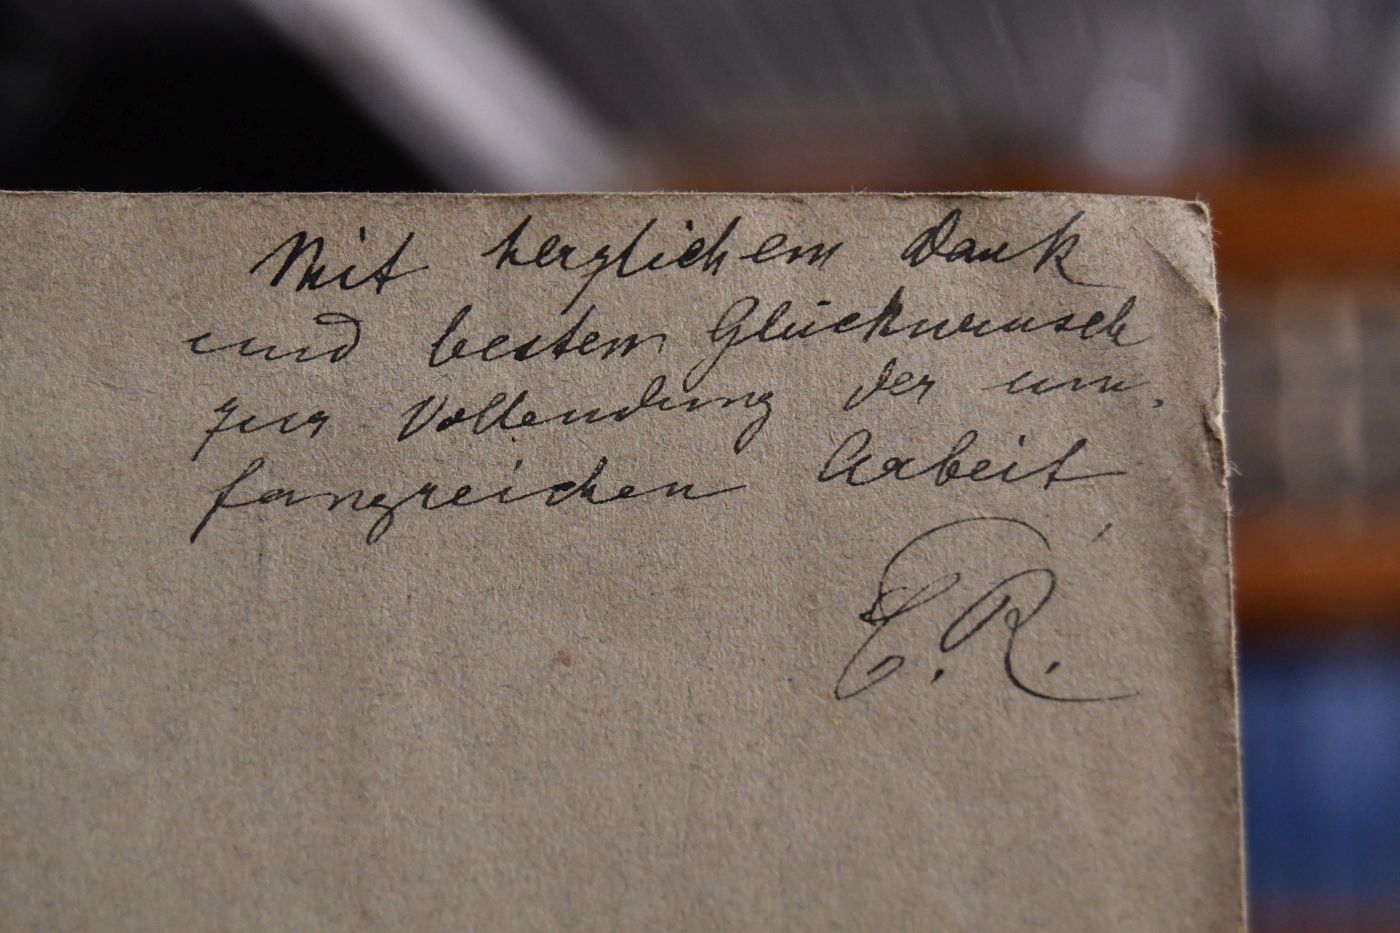 Mit herzlichem Dank
und bestem Glückwunsch
zur Vollendung der um-
fangreichen Arbeit
E.R.